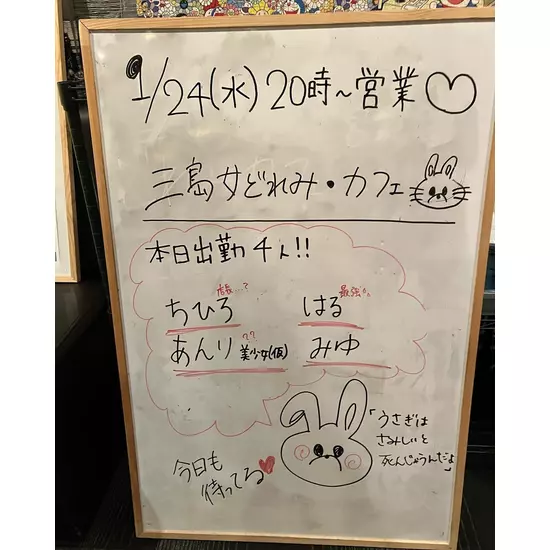 1/24(水) 20時~営業♡
三島女どれみ・カフェ
本日出勤 4人!!
店長…?
ちひろ
最強か。
はる
??
あんり 美少女(仮)
みゆ
「うさぎは
さみしいと
死んじゃうんだよ」
今日も
待ってる♥